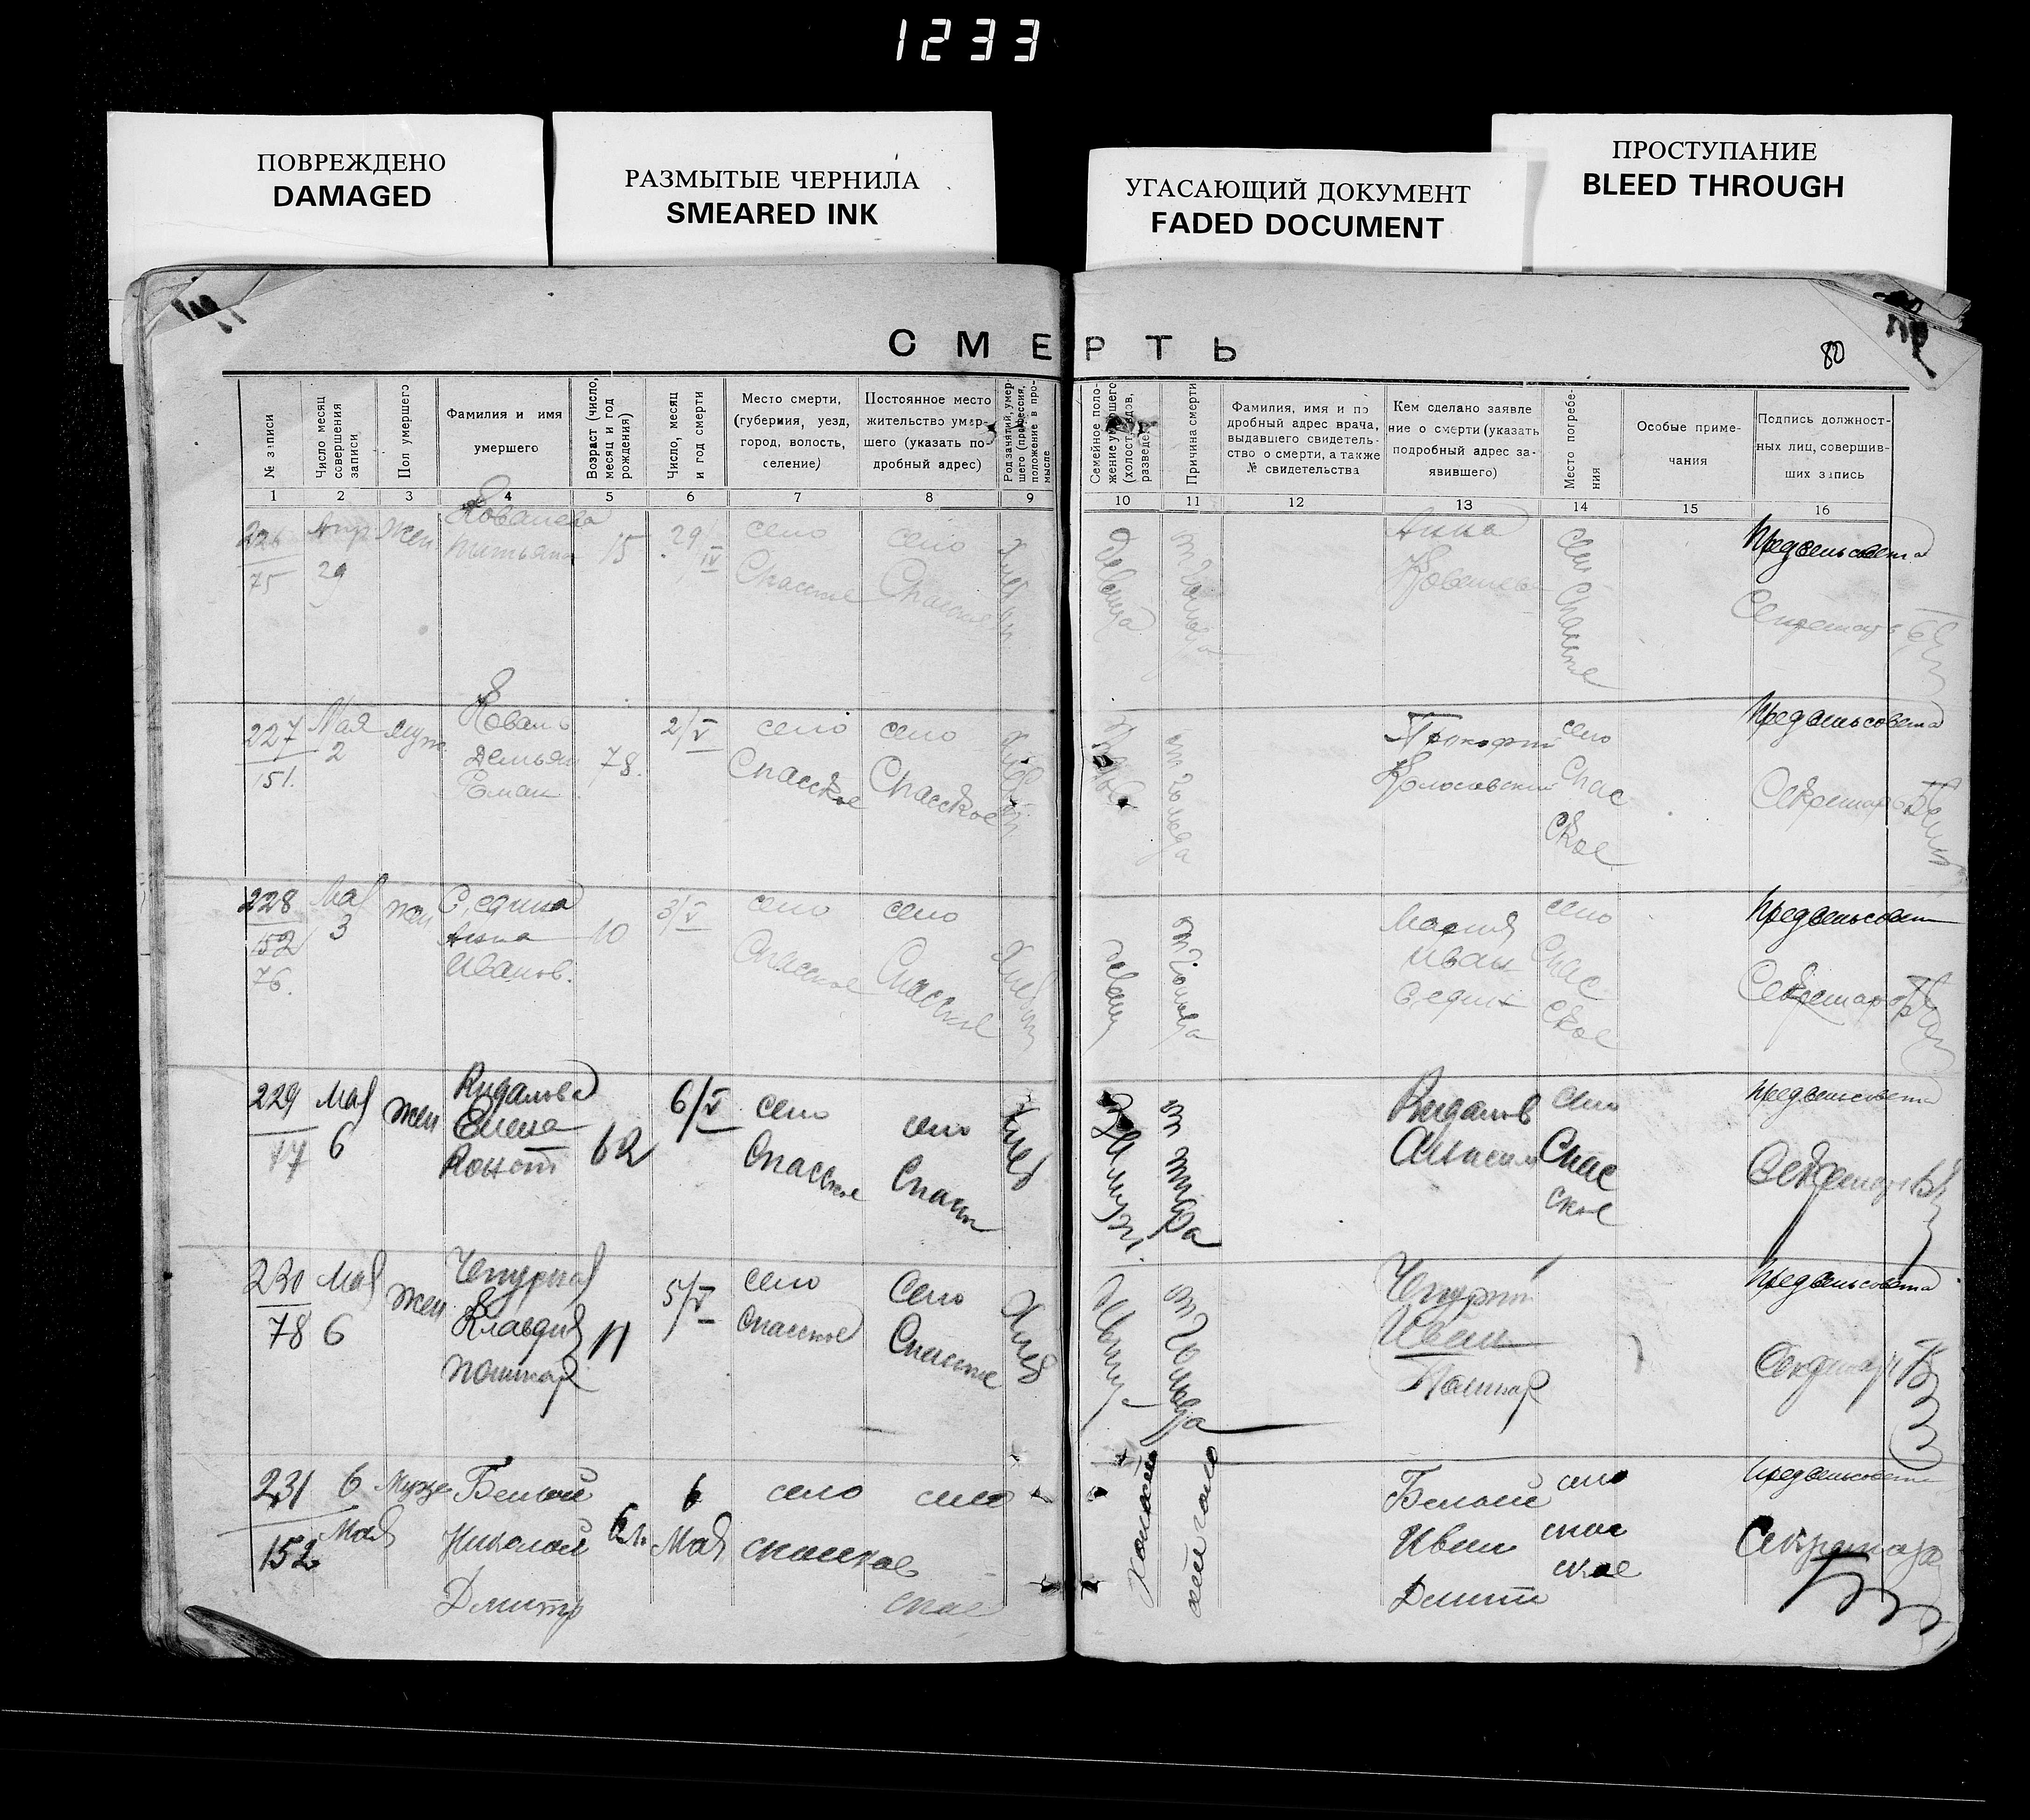 1233
ПОВРЕЖДЕНО
DAMAGED
РАЗМЫТЫЕ ЧЕРНИЛА
SMEARED INK
УГАСАЮЩИЙ ДОКУМЕНТ
FADED DOCUMENT
ПРОСТУПАНИЕ
BLEED THROUGH
СМЕРТЬ
80
№ записи
Число, месяц
совершения
записи
Пол умершего
Фамилия и имя
умершего
Возраст (число,
месяц и год
рождения)
Число, месяц
и год смерти
Место смерти,
(губерния, уезд,
город, волость,
селение)
Постоянное место
жительство умер-
шего (указать по-
дробный адрес)
Род занятий умер-
шего (профессия,
положение в про-
мысле
Семейное поло-
жение умершего
(холост, вдов,
разведен)
Причина смерти
Фамилия, имя и по
дробный адрес врача,
выдавшего свидетель-
ство о смерти, а также
№ свидетельства
Кем сделано заявле
ние о смерти (указать
подробный адрес за-
явившего)
Место погребе-
ния
Особые приме-
чания
Подпись должност-
ных лиц, совершив-
ших запись
1 2 3 4 5 6 7 8 9 10 11 12 13 14 15 16
226 Апр жен
75 29
15
29/IV
село
Спасское
село
Спасское
девица
от голода
Анна
село Спасское
Предсельсовета
Секретарь
227 Мая муж
151. 2
Коваль
Демьян
Роман
78.
2/V
село
Спасское
село
Спасское
от голода
Прокофий
Колосовский
село
Спас
ское
Предсельсовета
Секретарь
228 Мая жен
152 3
76.
Середина
Анна
Иванов.
10
3/V
село
Спасское
село
Спасское
от голода
Мария
Иван
село
Спас
ское
Предсельсовет
Секретарь
229 Мая жен
77 6
Кидалова
Елена
62
6/V
село
Спасское
село
Хлеб
Замуж.
от тифа
Кидалов
село
Спас
ское
Предсельсовета
Секретарь
230 Мая жен
78 6
Чепурная
Клавдия
11
5/V
село
Спасское
Село
Спасское
Хлеб
от голода
Чепурний
Иван
Предсельсовета
Секретарь
231 6
152 Мая
Белый
Николай
Дмитр
6
Мая
село
спасское
село
ское
холост
от голо
Белый
Иван
Дмит
село
спас
ское
Предсельсовета
Секретарь